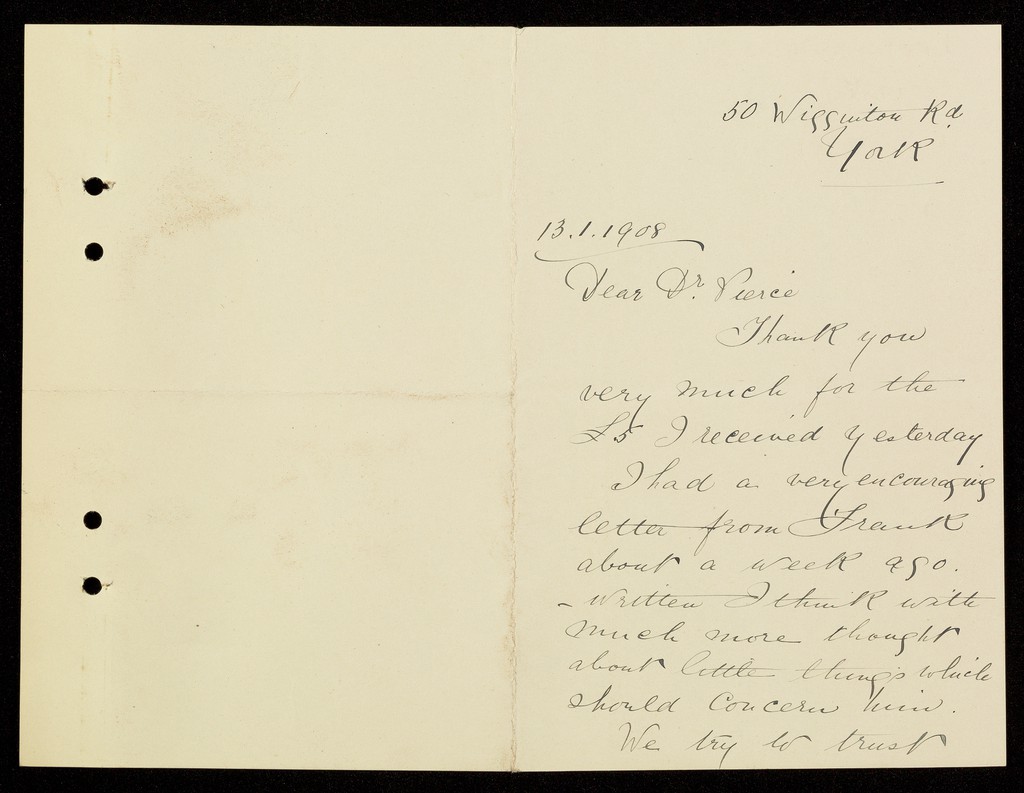 50 Wigginton Rd.
York
13.1.1908
Dear Dr. Pierce
Thank you
very much for the
£5 I received yesterday
I had a very encouraging
letter from Frank
about a week ago.
- written I think with
much more thought
about little things which
should concern him.
We try to trust